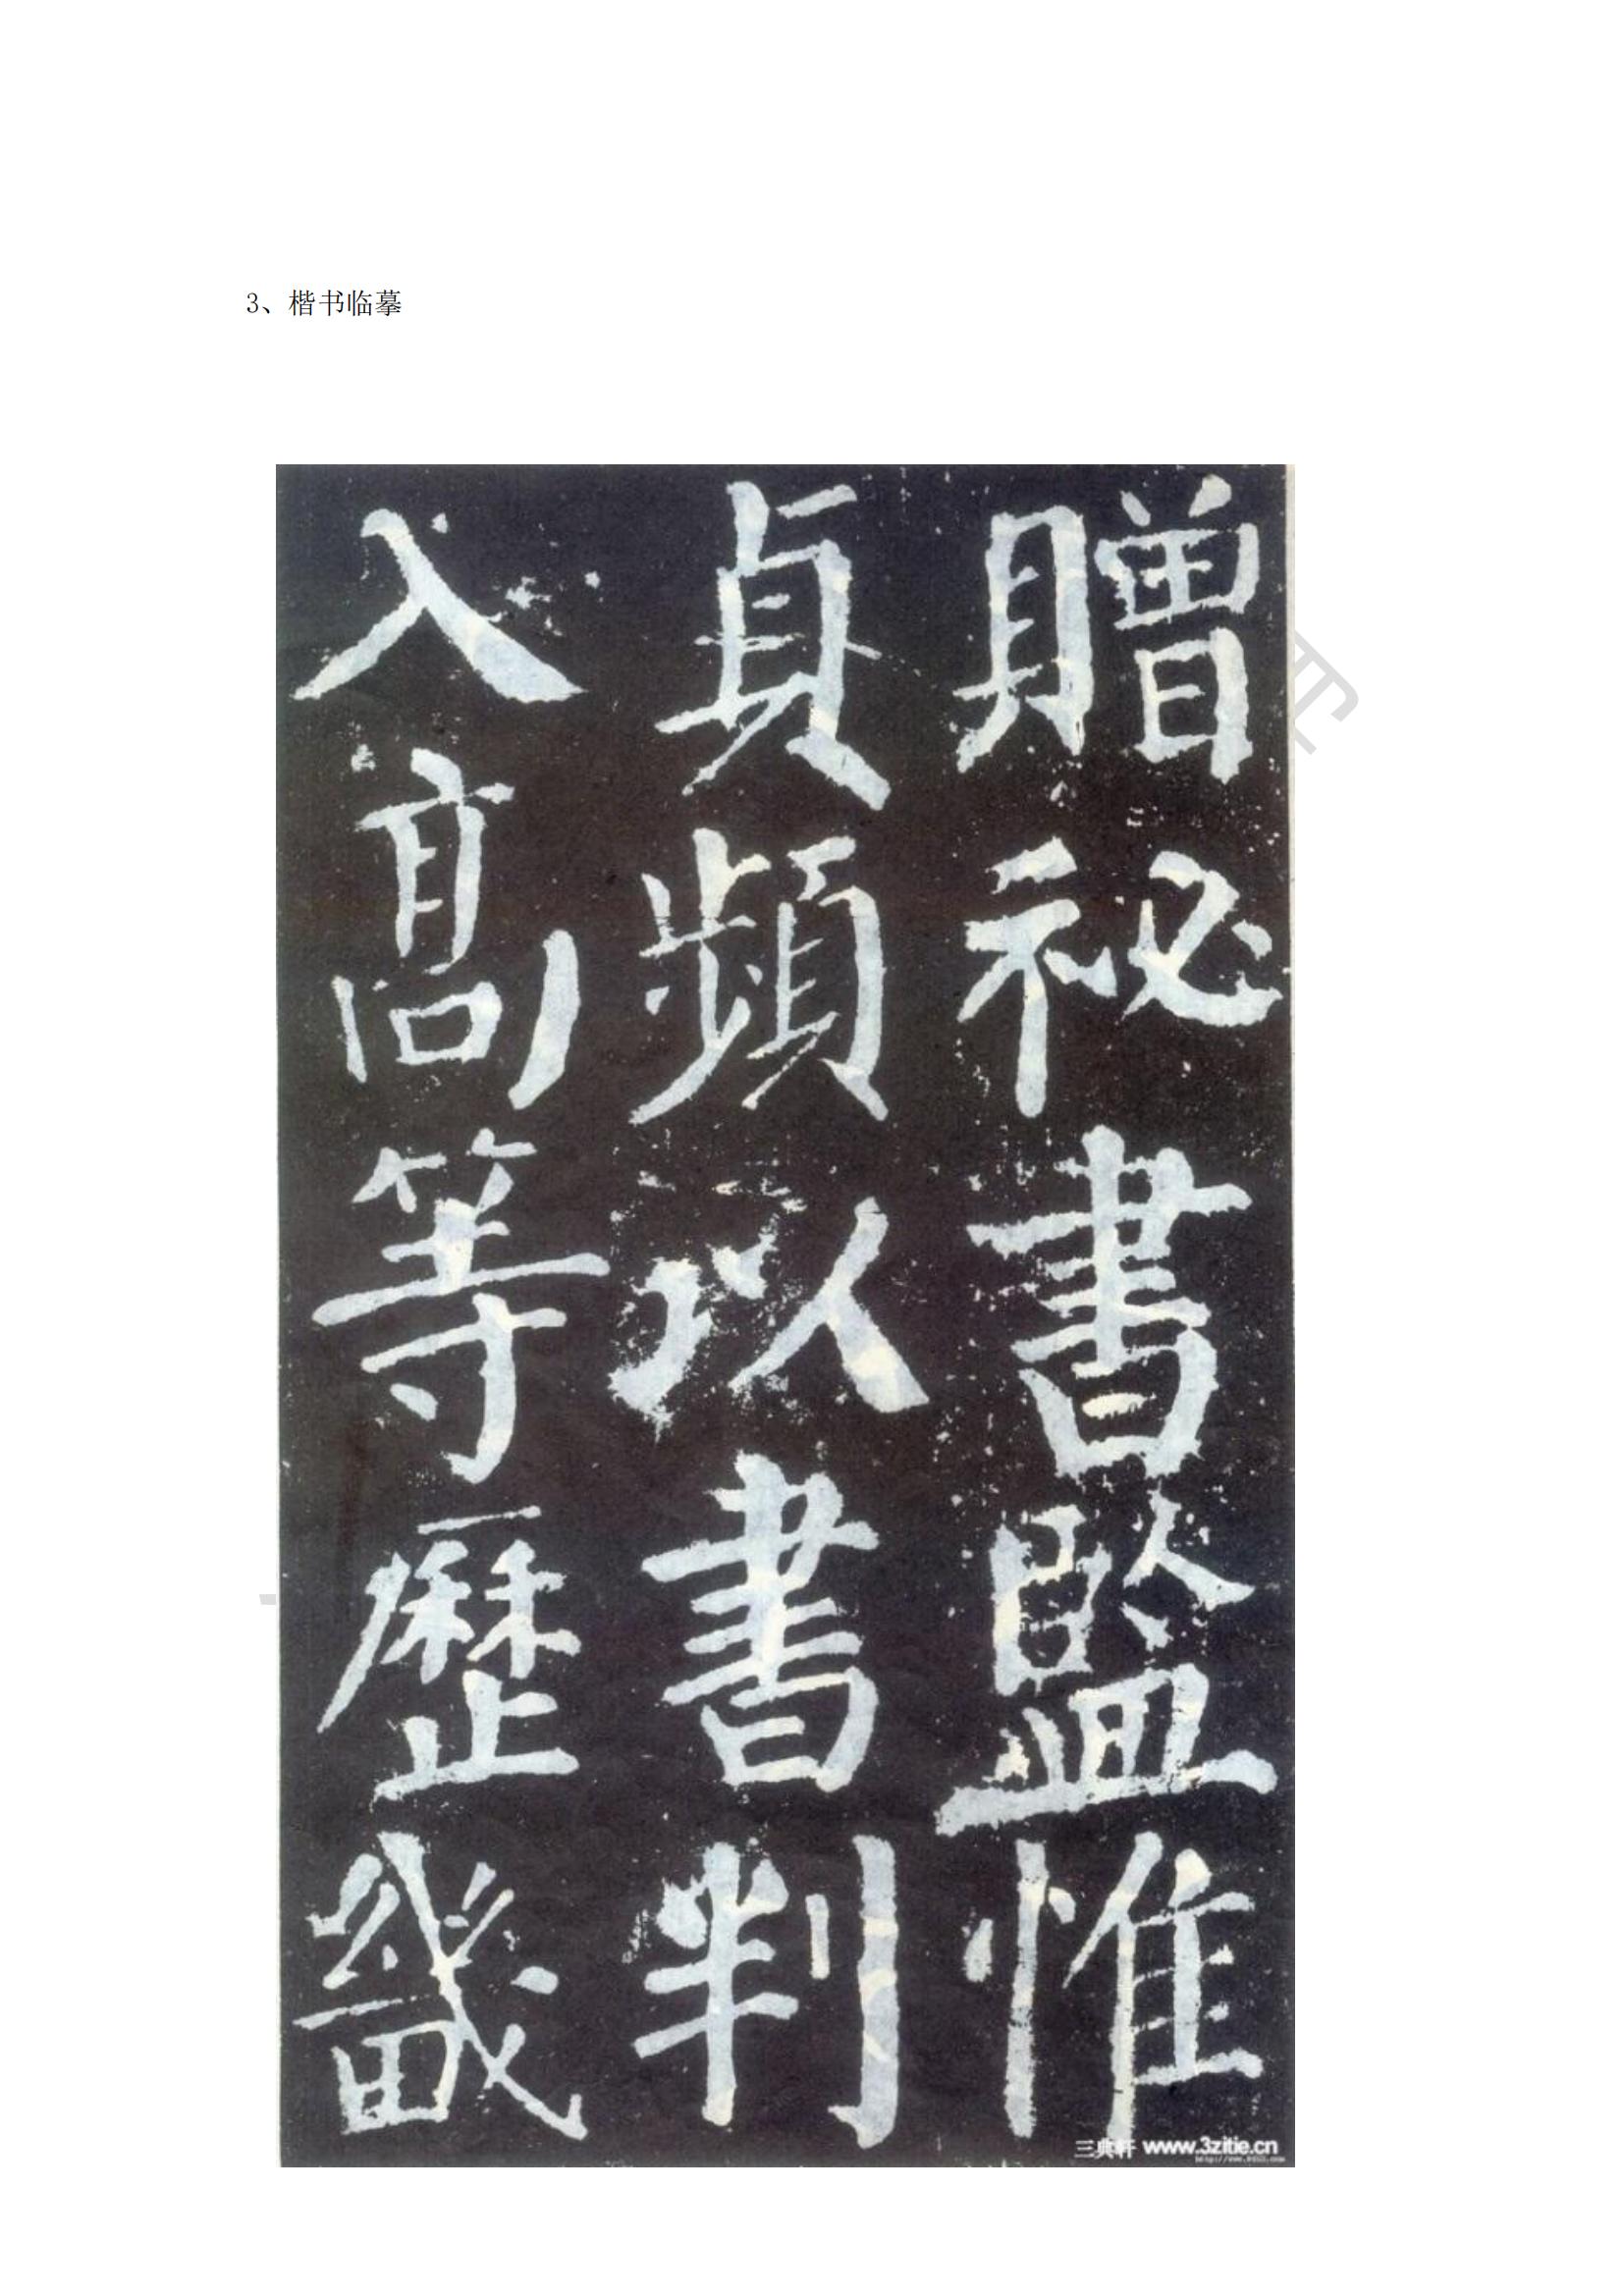 3、楷书临摹
贈祕書監惟
貞頻以書判
入高等歷畿
三典轩 www.3zitie.cn